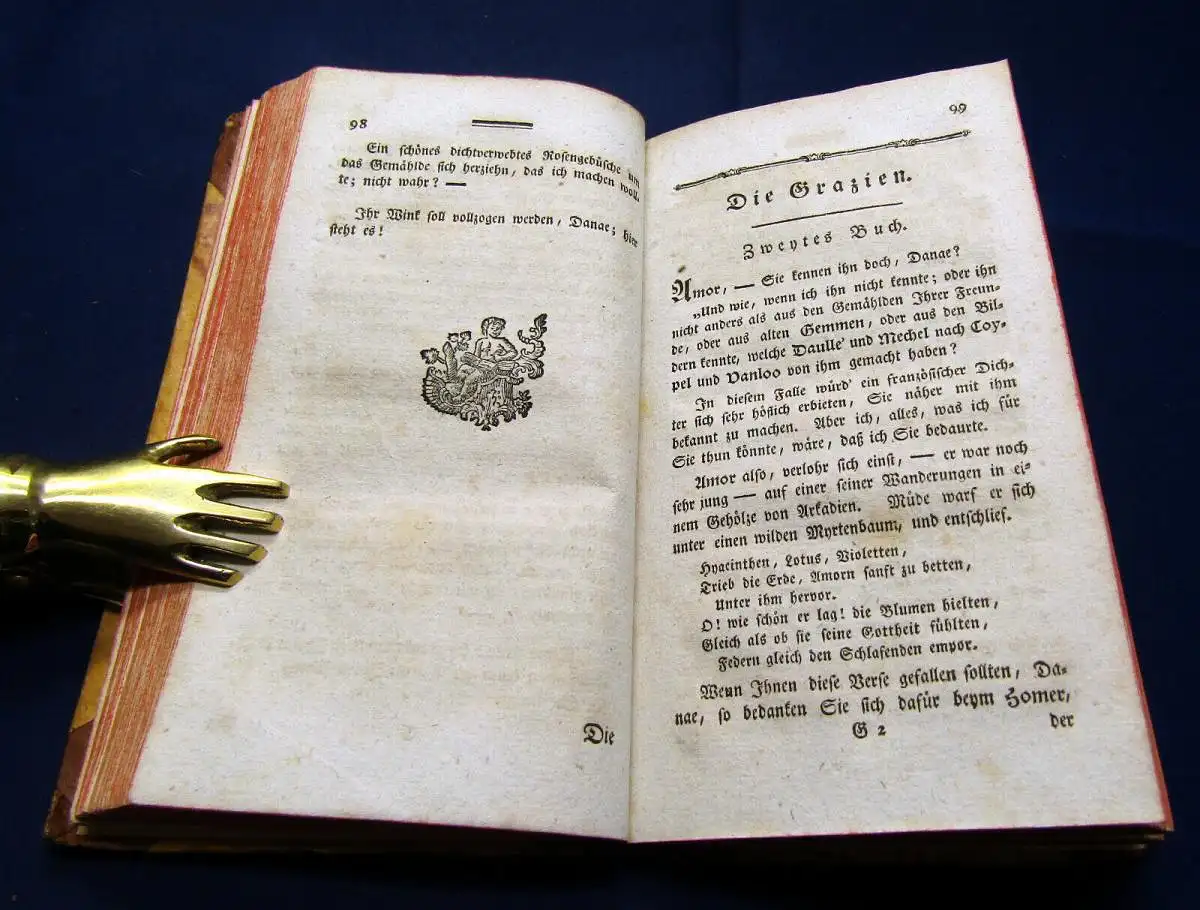 98
Ein schönes dichtverwebtes Rosengebüsche um
das Gemählde sich herziehn, das ich machen woll-
te; nicht wahr? —
Ihr Wink soll vollzogen werden, Danae; hier
steht es!
Die
99
Die Grazien.
Zweytes Buch.
Amor, — Sie kennen ihn doch, Danae?
„Und wie, wenn ich ihn nicht kennte; oder ihn
nicht anders als aus den Gemählden Ihrer Freun-
de, oder aus alten Gemmen, oder aus den Bil-
dern kennte, welche Daulle' und Mechel nach Coy-
pel und Vanloo von ihm gemacht haben?
In diesem Falle würd' ein französischer Dich-
ter sich sehr höflich erbieten, Sie näher mit ihm
bekannt zu machen. Aber ich, alles, was ich für
Sie thun könnte, wäre, daß ich Sie bedaurte.
Amor also, verlohr sich einst, — er war noch
sehr jung — auf einer seiner Wanderungen in ei-
nem Gehölze von Arkadien. Müde warf er sich
unter einen wilden Myrtenbaum, und entschlief.
Hyacinthen, Lotus, Violetten,
Trieb die Erde, Amorn sanft zu betten,
Unter ihm hervor.
O! wie schön er lag! die Blumen hielten,
Gleich als ob sie seine Gottheit fühlten,
Federn gleich den Schlafenden empor.
Wenn Ihnen diese Verse gefallen sollten, Da-
nae, so bedanken Sie sich dafür beym Homer,
G 2
der